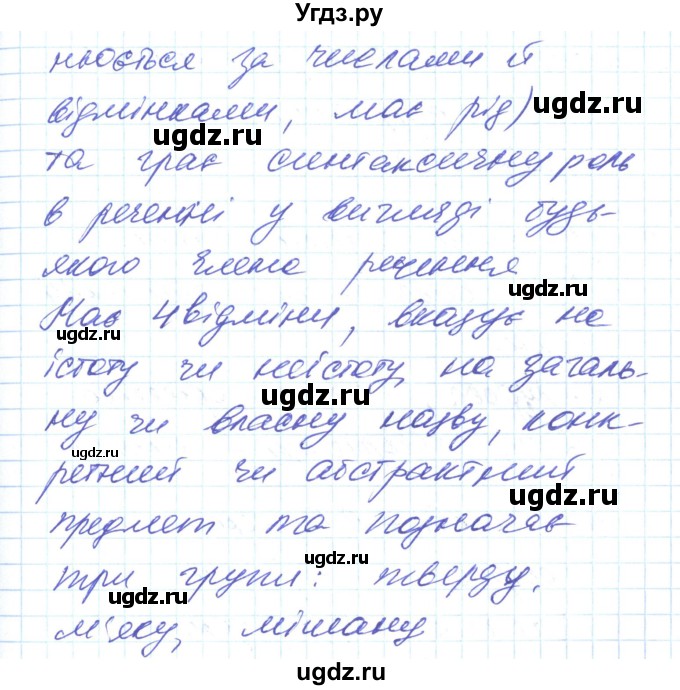 Угдз.ру
нюється за числами й
відмінками, має рід)
та грає синтаксичну роль
в реченні у вигляді будь-
якого члена речення
Має 4 відміни, вказує на
істоту чи неістоту, на загаль-
ну чи власну назву, конк-
ретний чи абстрактний
предмет та позначає
три групи: тверду,
м'яку, мішану
ugdz.ru
ugdz.ru
ugdz.ru
ugdz.ru
ugdz.ru
ugdz.ru
ugdz.ru
ugdz.ru
ugdz.ru
ugdz.ru
ugdz.ru
ugdz.ru